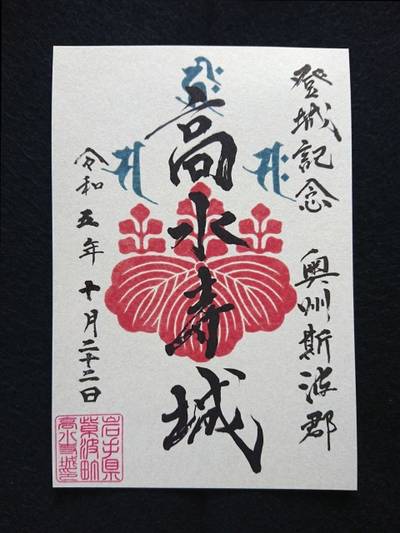 登城記念 奥州斯波郡
高水寿城
令和五年十月二十二日
岩手県
紫波町
高水寺城